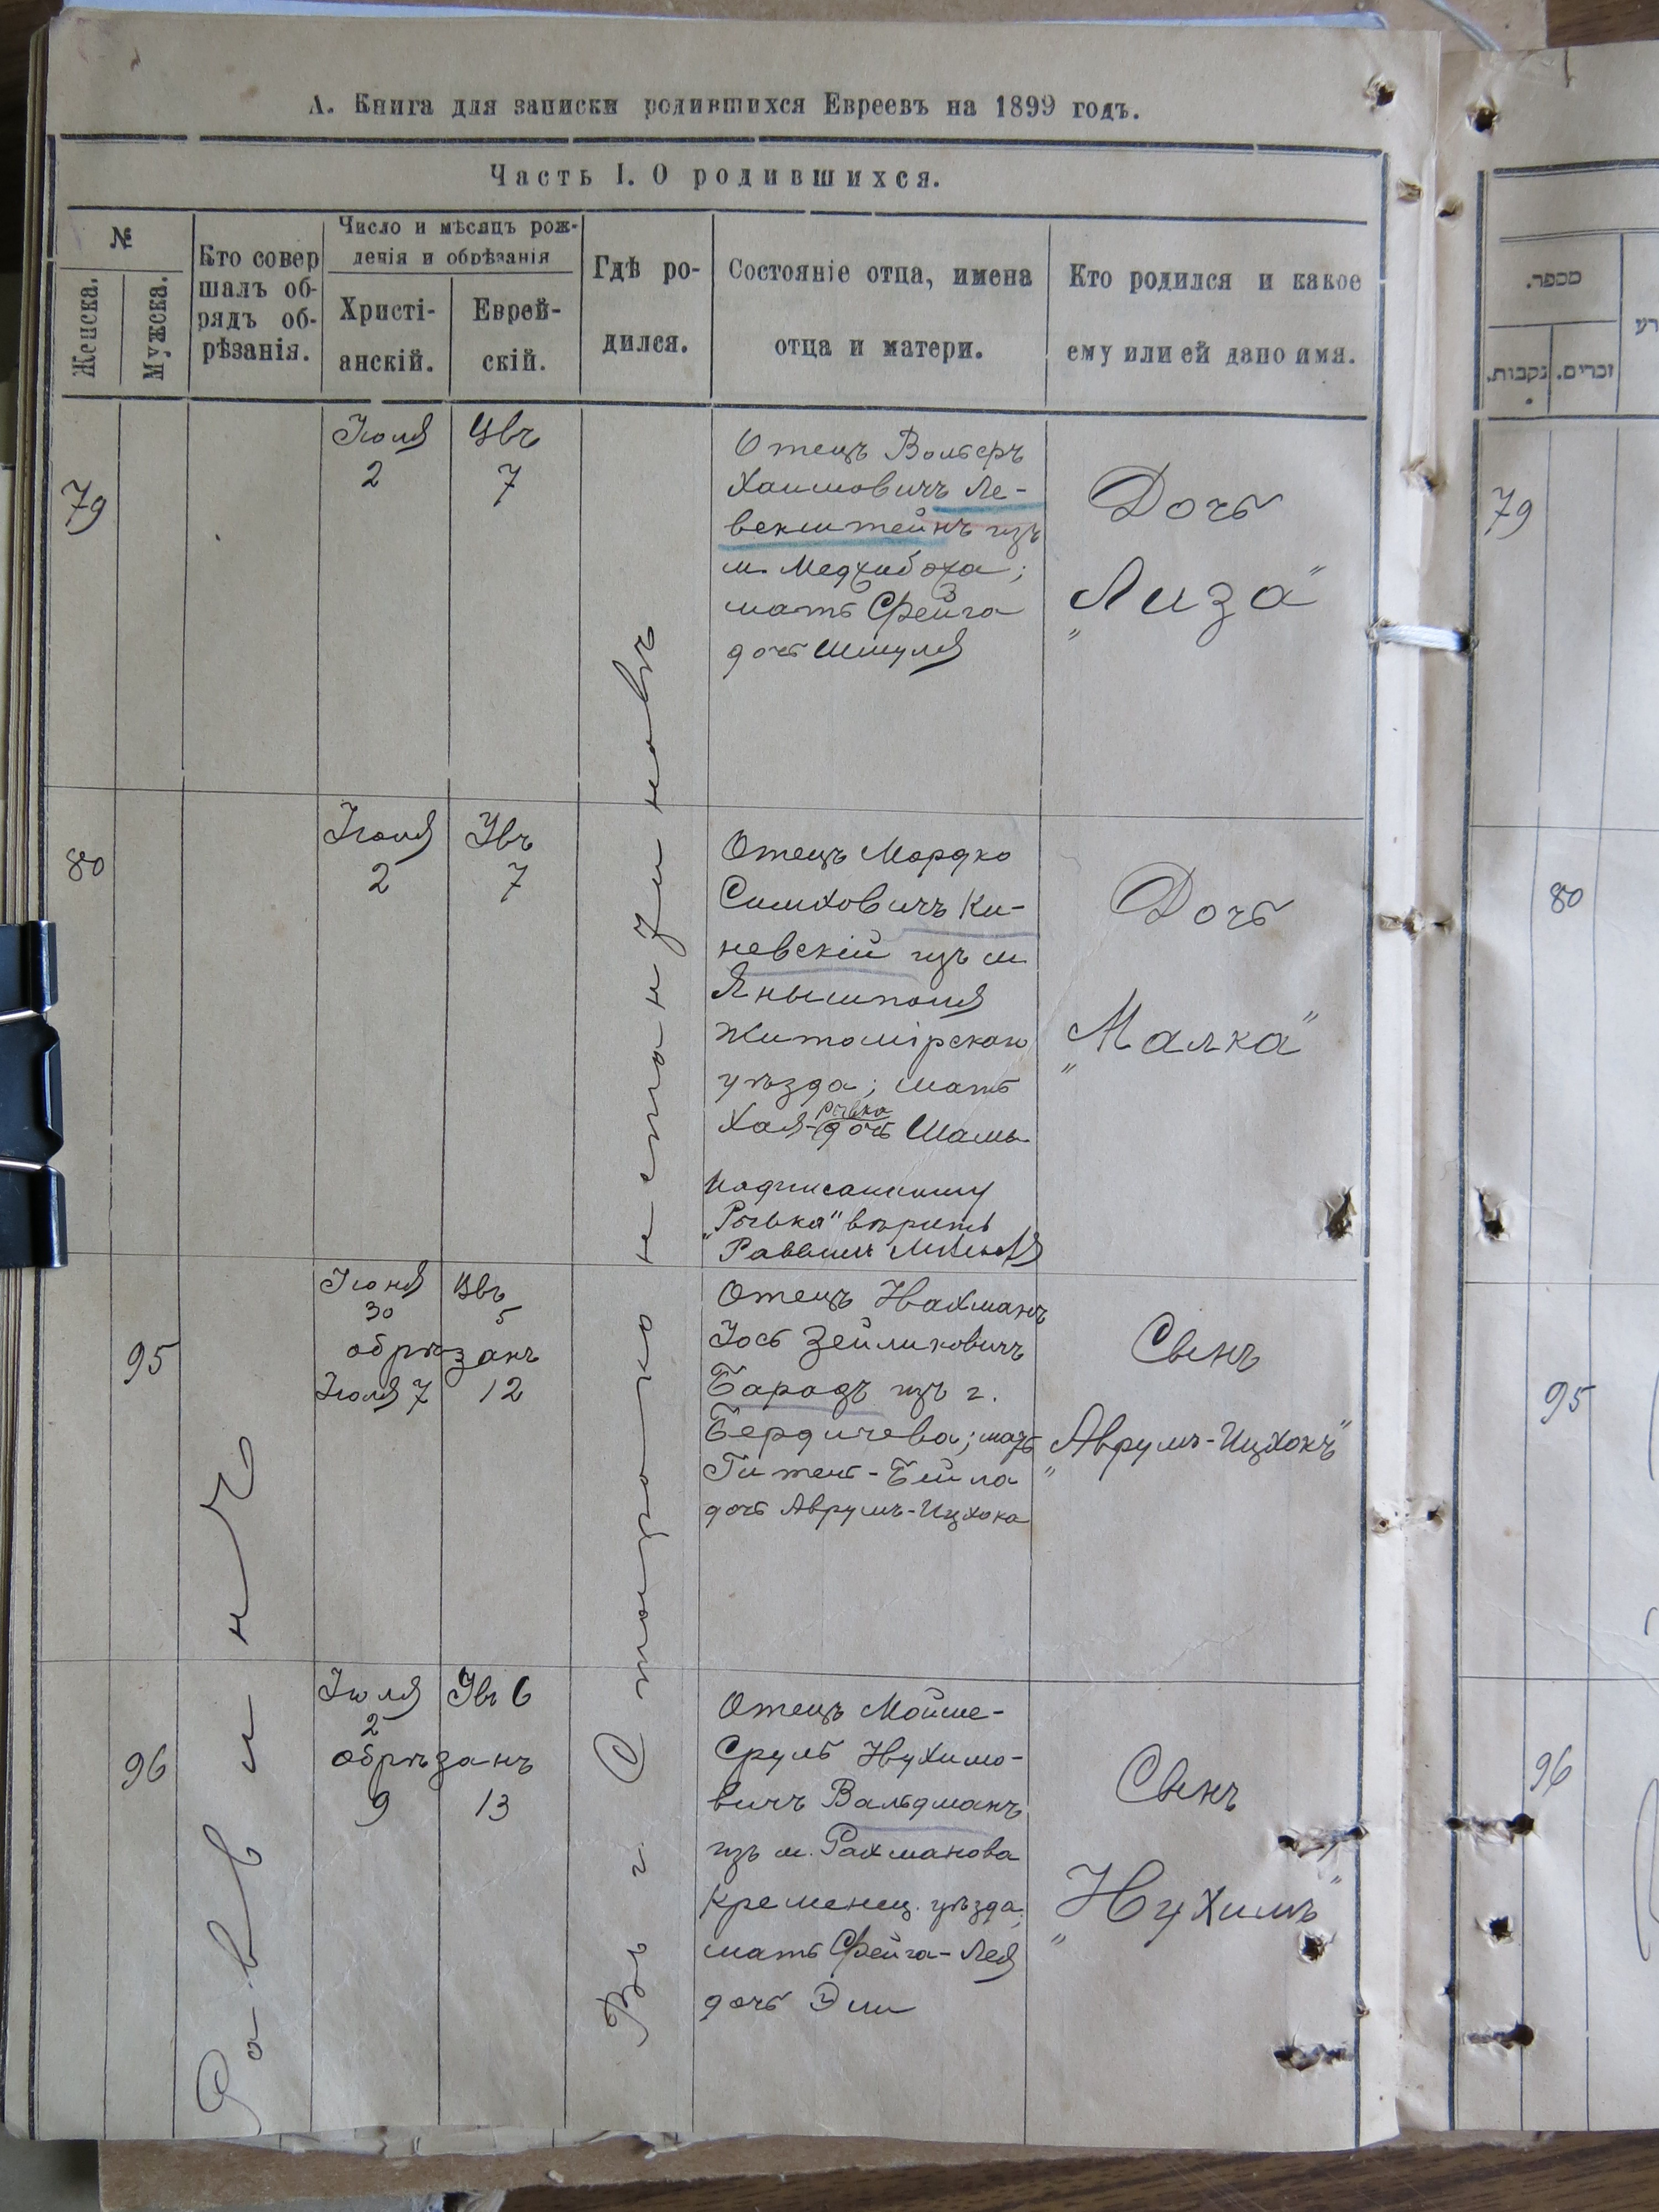 А. Книга для записки родившихся Евреевъ на 1899 годъ.
Часть I. О родившихся.
№
Женска.
Мужска.
Кто совер
шалъ об-
рядъ об-
рѣзанія.
Число и мѣсяцъ рож-
денія и обрѣзанія
Христі-
анскій.
Еврей-
скій.
Гдѣ ро-
дился.
Состояніе отца, имена
отца и матери.
Кто родился и какое
ему или ей дано имя.
מספר.
נקבות.
זכרים.
79
Іюля
2
7
Отецъ Вольфъ
Хаимовичъ Ле-
векштейнъ изъ
м. Меджибожа;
мать Фейга
дочь Шмуля
Дочь
"Лиза"
79
80
Іюля
2
7
Отецъ Мордко
Симховичъ Ки-
невскій изъ м
Янышполя
Житомірскаго
уѣзда; мать
Хая-Рывка дочь Шамы
Надписанному
"Рывка" вѣрить
Раввинъ
Дочь
"Малка"
80
95
Іюня
30
5
обрѣзанъ
Іюля 7 12
Отецъ Нахманъ
Іось Зейликовичъ
Барадъ изъ г.
Бердичева; мать
Гитень-Бейла
дочь Аврумъ-Ицхока
Сынъ
"Аврумъ-Ицхокъ"
95
96
Іюля
2
6
обрѣзанъ
9 13
Отецъ Мойше-
Сруль Нухимо-
вичъ Вальдманъ
изъ м. Рахманова
Кременец. уѣзда;
мать Фейга-Лея
дочь Эли
Сынъ
"Нухимъ"
96
Раввинъ
Въ г. Староконстантиновъ